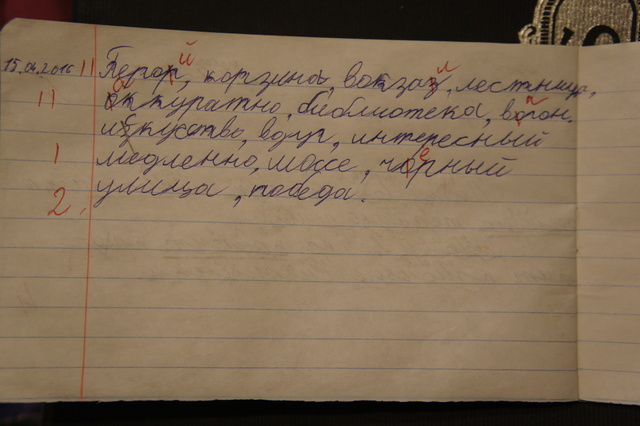 15.04.2016 || Герой, корзина, вокзал, лестница,
|| аккуратно, библиотека,
искуство, вдруг, интересный
| медленно, шоссе, чорный
улица, победа.
2.